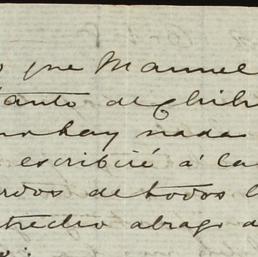 que Manuel
tanto de Chih
no hay nada
escribiré á la
rdos de todos l
trecho abrazo d